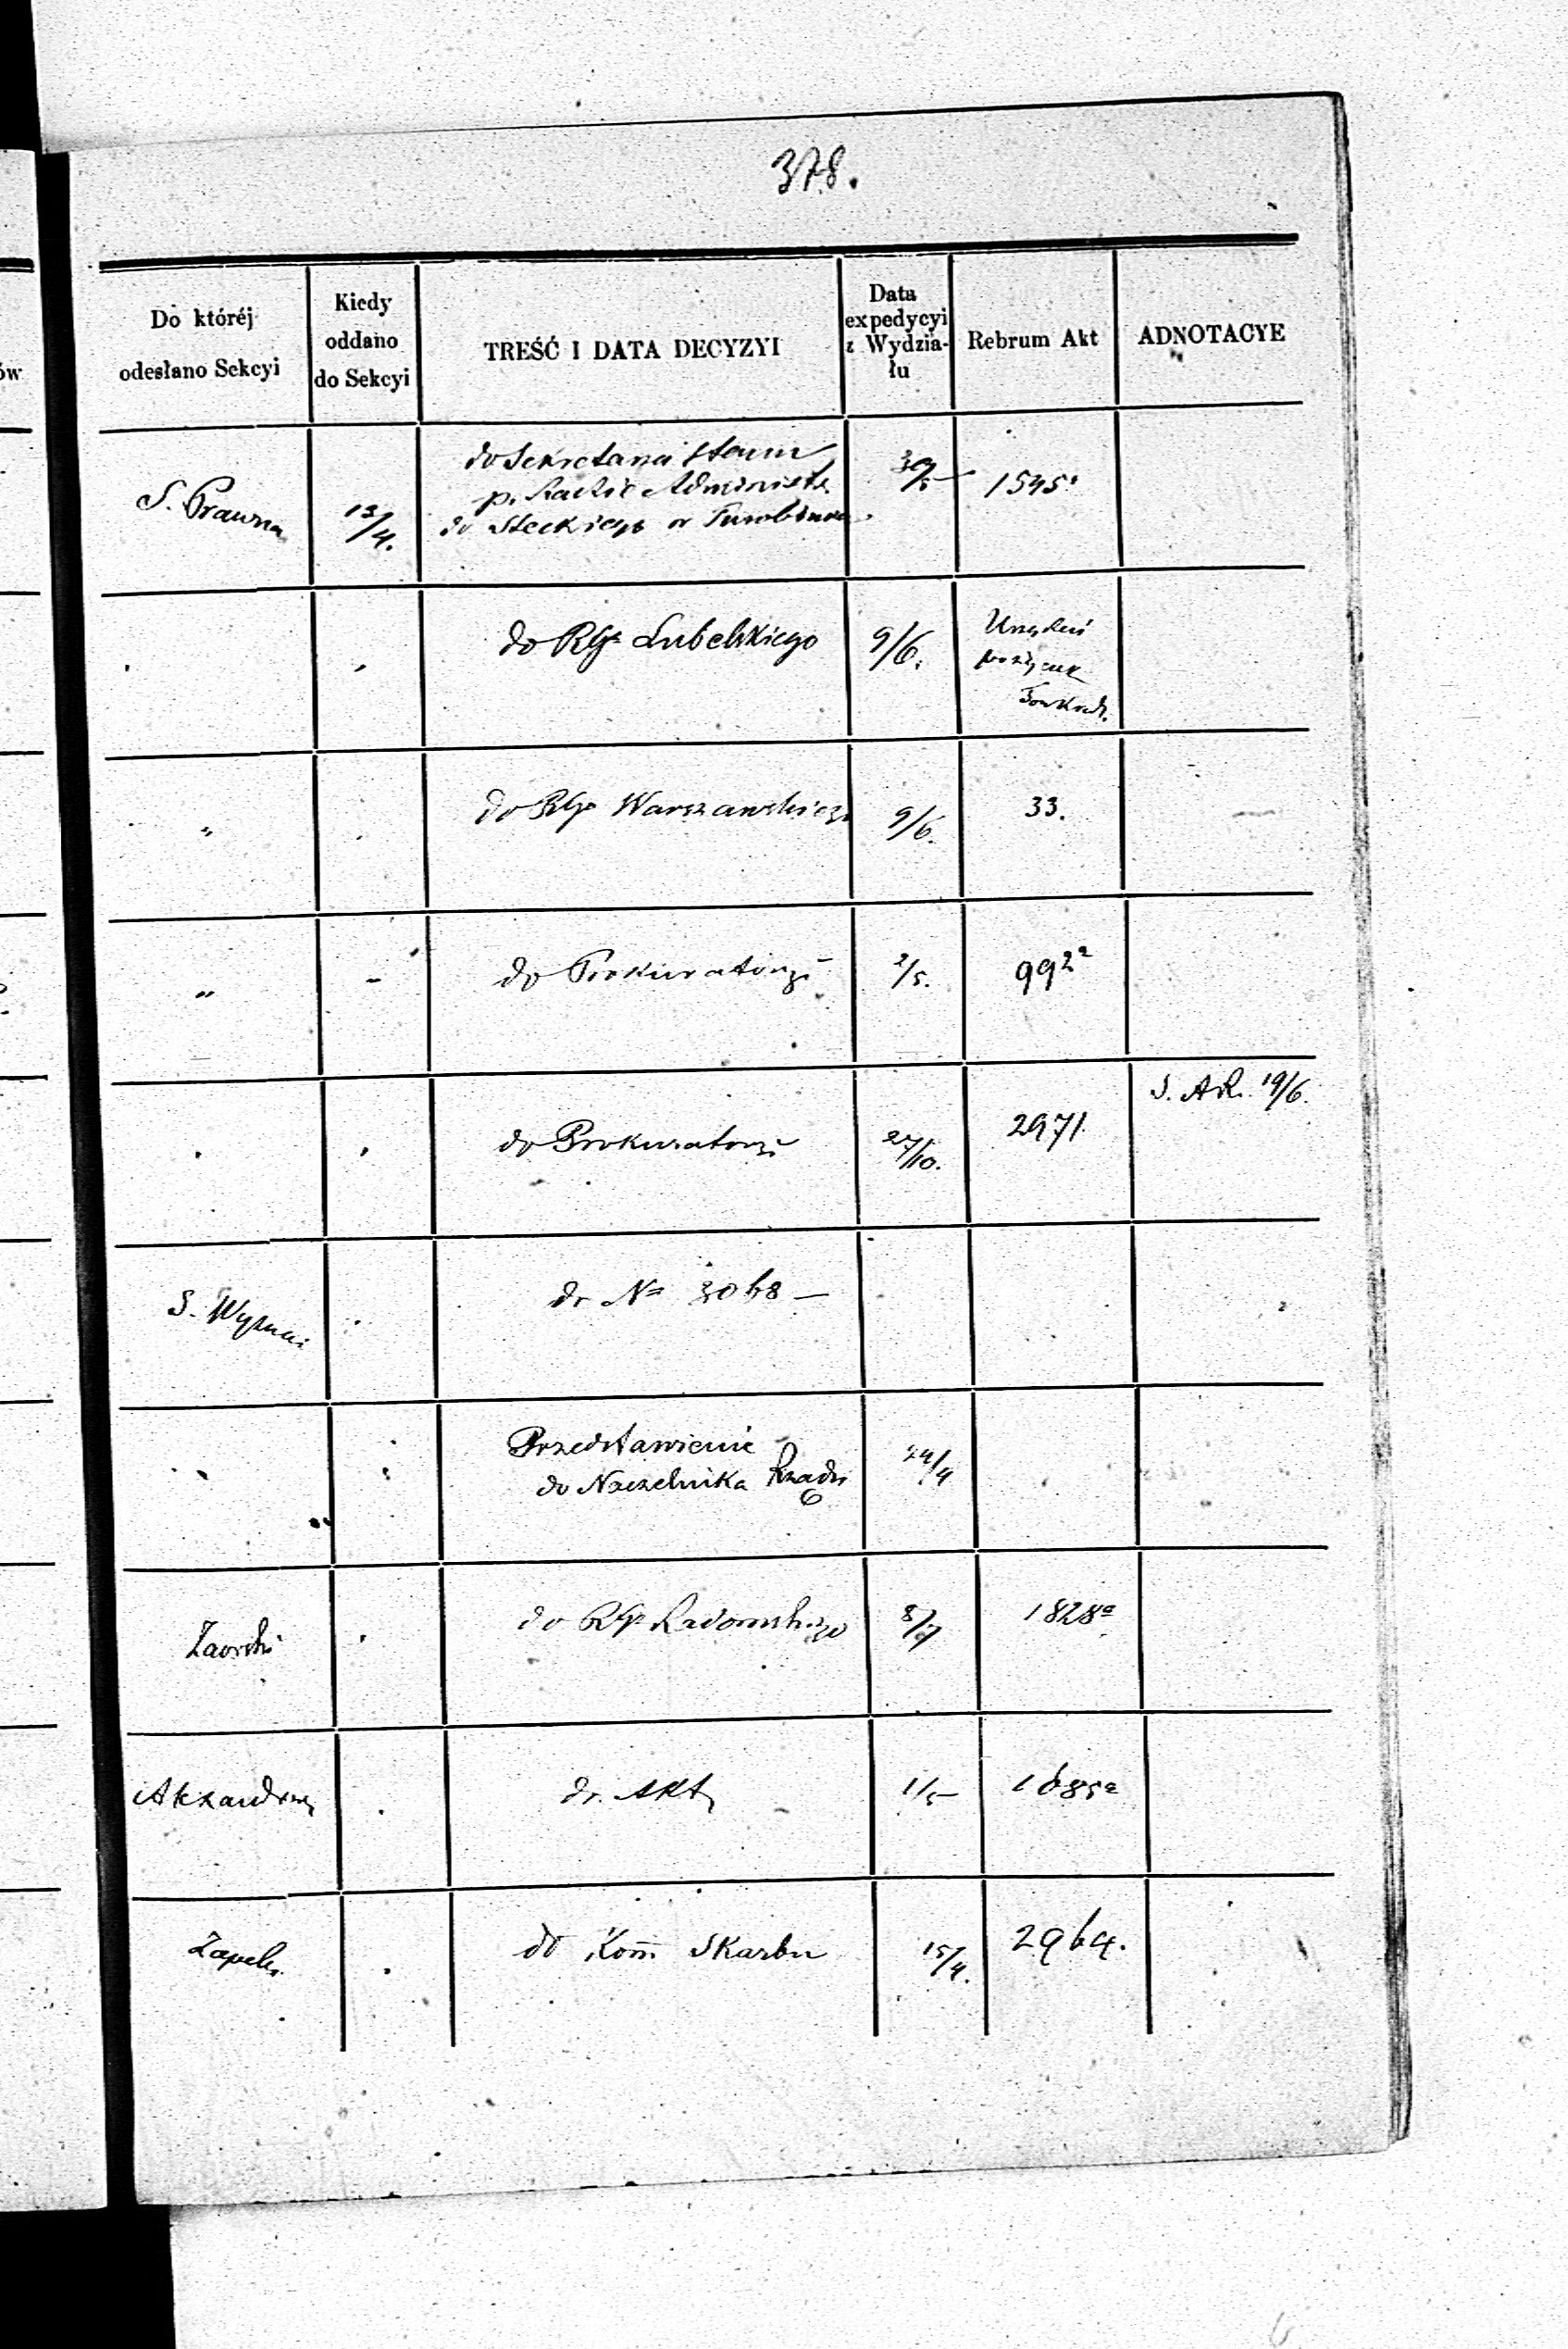 378.
Do któréj odesłano Sekcyi
Kiedy oddano do Sekcyi
TREŚĆ I DATA DECYZYI
Data expedycyi z Wydzia-łu
Rebrum Akt
ADNOTACYE
S. Prawna
13/4.
do Sekretarza Stanu
p. Radzie Administr.
do Steckiego w Turobinie
30/5
1545
do RGo Lubelskiego
9/6.
pożyczk
do RGo Warszawskiego
9/6.
33.
"
do Prokuratoryi
2/5.
992a
"
do Prokuratoryi
27/10.
2971
S. AR. 19/6.
S. Wyznań
do No 3068 —
Przedstawienie
do Naczelnika Rządu
24/4
Zaorski
do RGo Radomskiego
8/7
1828a
do Akt
1/5
1685a
do Kom. Skarbu
15/4.
2964.